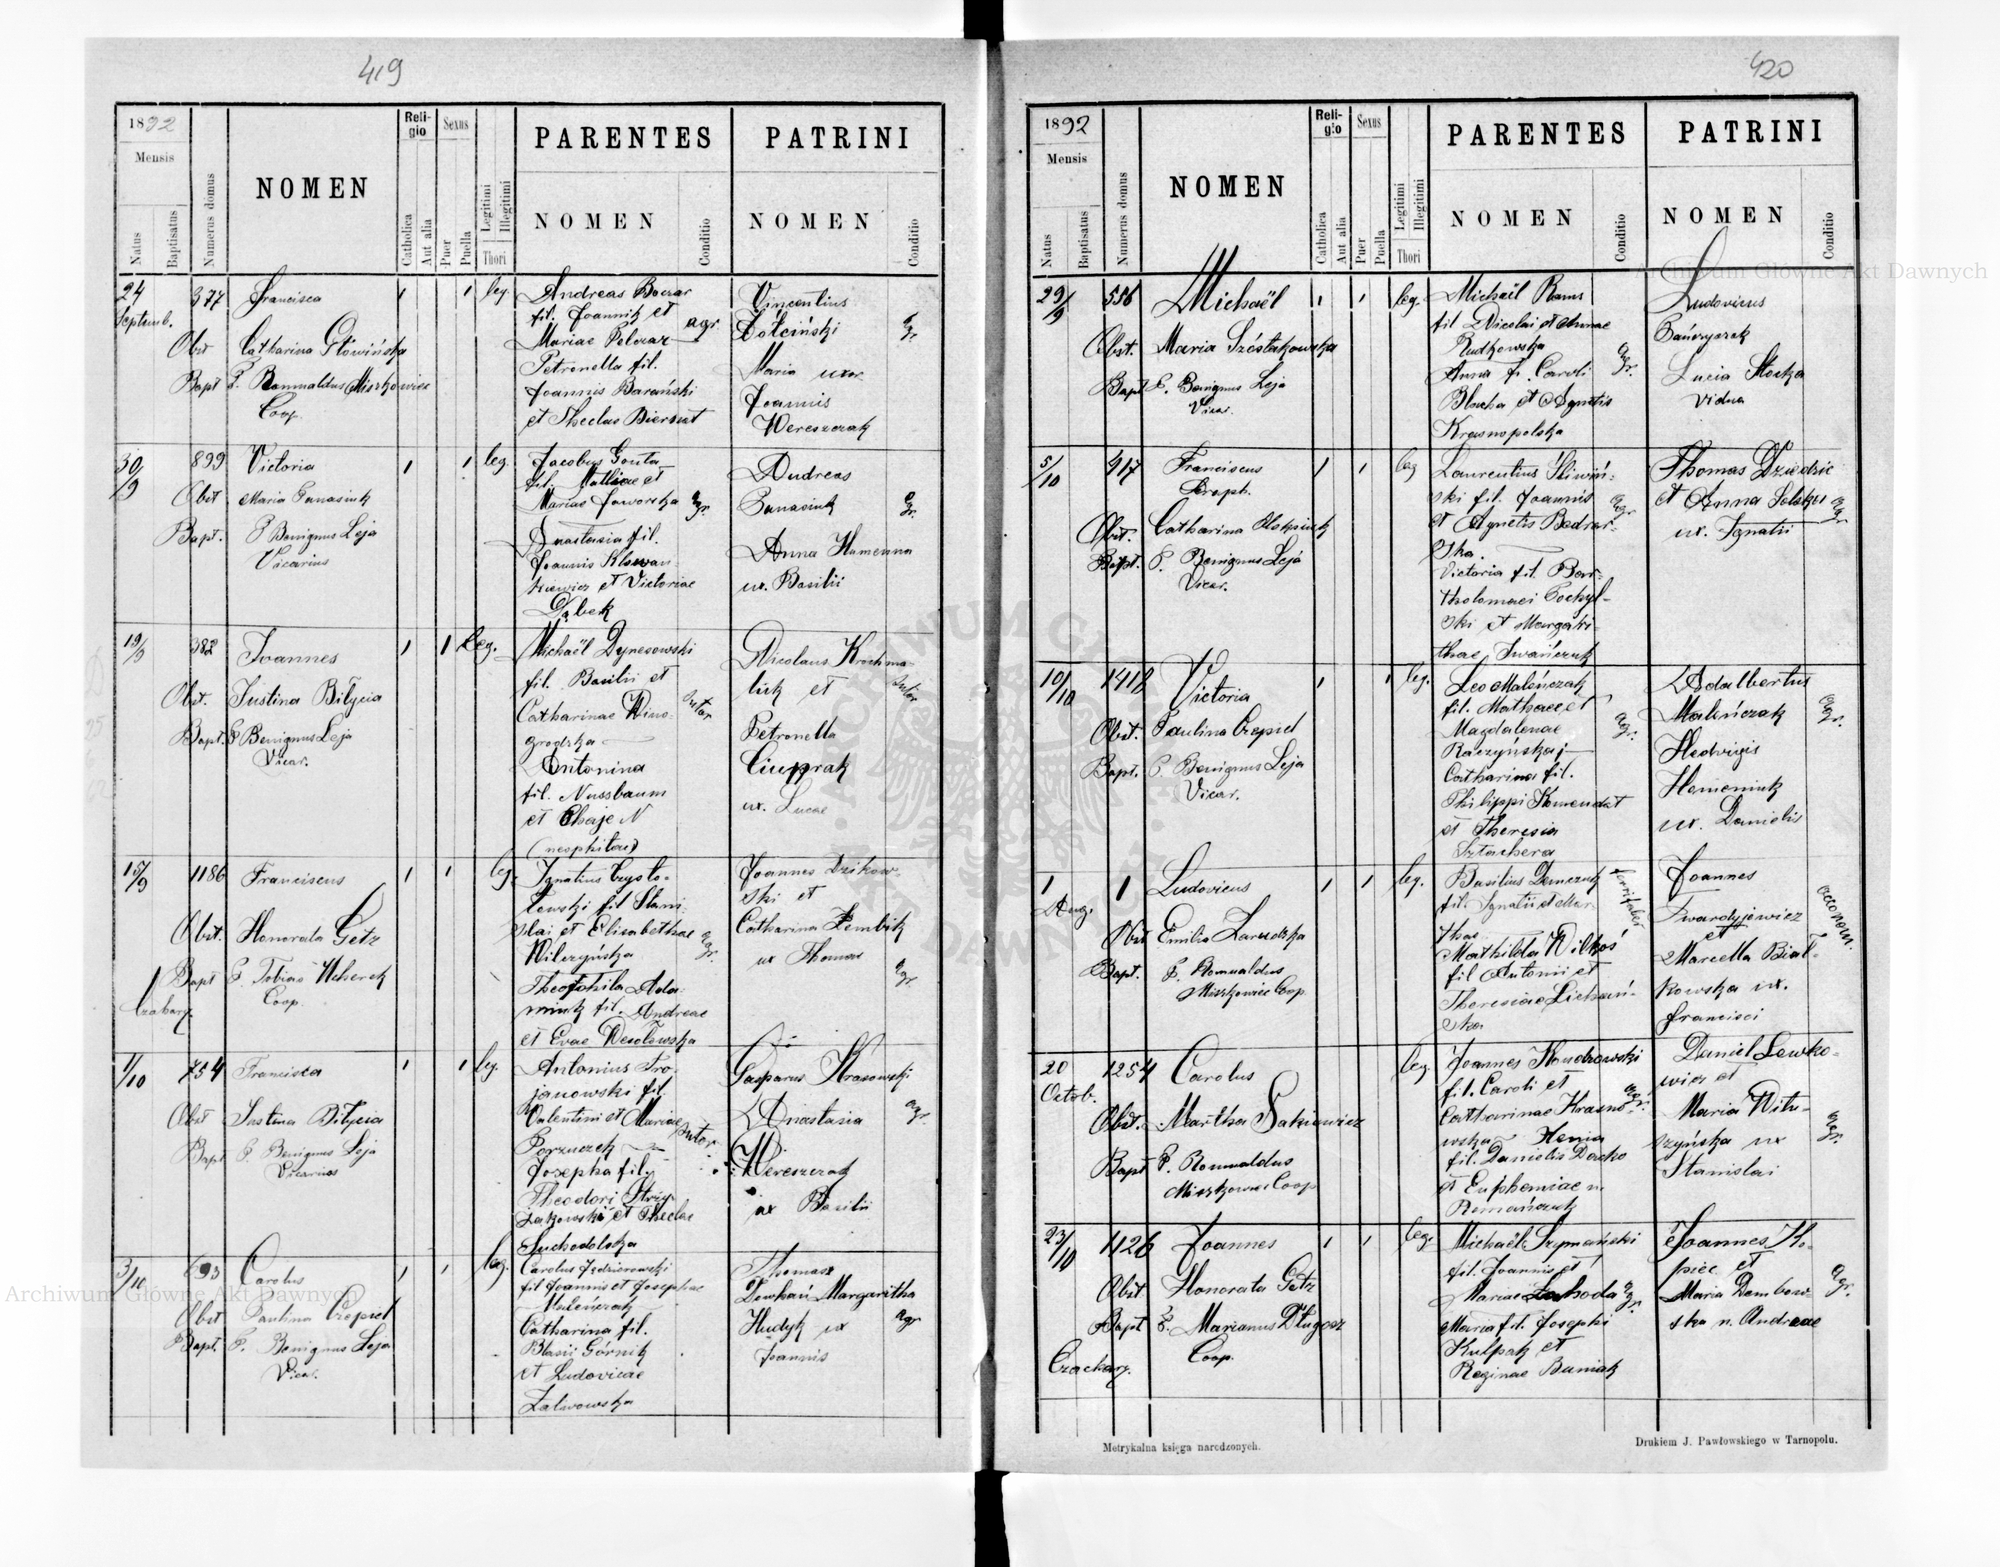 419
1892
Mensis
Natus
Baptisatus
Numerus domus
NOMEN
Religio
Catholica
Aut alia
Sexus
Puer
Puella
Legitimi
Illegitimi
Thori
PARENTES
NOMEN
Conditio
PATRINI
NOMEN
Conditio
24 Septemb.
377
Francisca
1
1
leg.
Obst Catharina Główińska
Bapt P. Romualdus Miszkowiec
Coop.
Andreas
fil. Joannis et
Mariae
Petronella fil.
Joannis Barański
et Theclae
agr
Vincentius
Maria uxor
Joannis
Wereszczak
agr.
30/9
899
Victoria
1
1
leg.
Obst Maria Panasiuk
Bapt. P Benignus Leja
Vicarius
Jacobus Gonta
fil. Mathiae et
Mariae Jaworska
Anastasia fil.
Joannis
et Victoriae
Dąbek
agr.
Andreas
Panasiuk
Anna Humenna
ux. Basilii
agr.
19/9
382
Joannes
1
1
leg.
Obst. Justina Bilycia
Bapt. P Benignus Leja
Vicar.
Michaël Dynesowski
fil. Basilii et
Catharinae Winogrodzka
Antonina
fil. Nussbaum
et Chaje N
(neophitae)
sutor
Nicolaus Krochmaluk et
Petronella
Ciuprak
ux. Lucae
sutor
15/9
1186
Franciscus
1
1
leg.
Obst. Honorata Getz
Bapt P. Tobias Weherek
Coop.
Ignatius
fil Stanislai et Elisabethae
Wilczyńska
Theophila Adamiuk fil. Andreae
et Evae Wesołowska
agr.
Joannes Dzikowski et
Catharina Zembik
ux Thomae
agr.
1/10
754
Francisca
1
1
leg.
Obst Justina Bilycia
Bapt P. Benignus Leja
Vicarius
Antonius Trojanowski fil.
Valentini et Mariae
Porzuczek
Josepha fil.
Theodori
et Theclae
Suchodolska
sutor
Gasparus Krasowski
Anastasia
Wereszczak
ux Basilii
agr.
3/10
693
Carolus
1
1
leg.
Obst Paulina Czepiel
Bapt. P. Benignus Leja
Vicar.
Carolus
fil Joannis et Josephae
Maleńczak
Catharina fil.
Blasii Górnik
et Ludovicae
Zalwowska
Thomas
Margaritha
Hudyk ux
Joannis
agr
420
1892
Mensis
Natus
Baptisatus
Numerus domus
NOMEN
Religio
Catholica
Aut alia
Sexus
Puer
Puella
Legitimi
Illegitimi
Thori
PARENTES
NOMEN
Conditio
PATRINI
NOMEN
Conditio
29/9
556
Michaël
1
1
leg.
Obst. Maria Szóstakowska
Bapt P. Benignus Leja
Vicar.
Michaël Rams
fil Nicolai et Annae
Rudkowska
Anna f. Caroli
Blacha et Agnetis
Krasnopolska
agr.
Ludovicus
Lucia Słocka
vidua
5/10
417
Franciscus
Seraph.
1
1
leg
Obst. Catharina Oleksiuk
Bapt. P. Benignus Leja
Vicar.
Laurentius Śliwiński fil. Joannis
et Agnetis
Victoria fil. Bartholomaei
et Margarithae Iwańczuk
agr
Thomas Dziedzic
et Anna Solska
ux. Ignatii
agr
10/10
1418
Victoria
1
1
leg.
Obst. Paulina Czepiel
Bapt. P. Benignus Leja
Vicar.
Leo Maleńczak
fil. Mathaei et
Magdalenae
Raczynska;
Catharina fil.
Philippi Komendat
et Theresia
Sztachera
agr.
Adalbertus
Maleńczak
Hedvigis
Homeniuk
ux. Danielis
agr.
1 Aug.
1
Ludovicus
1
1
leg.
Obst Emilia Zarudzka
Bapt. P. Romualdus
Miszkowiec Coop
Basilius Demczuk
fil. Ignatii et Marthae
Mathilda Wilkoś
fil Antonii et
Theresiae
ferrifaber
Joannes
Twardyjewicz
et
Marcella Białkowska ux.
Francisci
oeconom.
20 Octob.
1254
Carolus
leg.
Obst. Martha Sakiewicz
Bapt P. Romualdus
Miszkowiec Coop
Joannes Kondrowski
fil. Caroli et
Catharinae
Xenia
fil. Danielis Dacko
et Euphemiae n.
Romańczuk
agr.
Daniel Lewkowicz et
Maria Wituszyńska ux
Stanislai
agr.
23/10
1126
Joannes
1
1
leg.
Obst Honorata Getz
Bapt P. Marianus Długosz
Coop.
Michaël Szymański
fil. Joannis et
Mariae Zahoda
Maria fil. Josephi
Kulpak et
Reginae Buniak
agr.
Joannes Kopiec et
Maria Dembowska n. Andreae
agr.
Metrykalna księga narodzonych.
Drukiem J. Pawłowskiego w Tarnopolu.
Archiwum Główne Akt Dawnych
Archiwum Główne Akt Dawnych